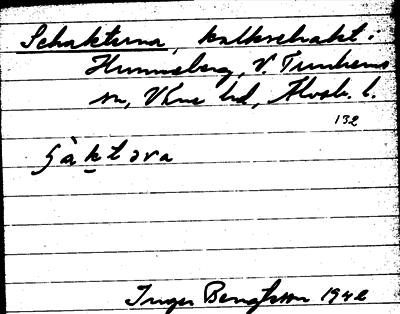 Schakterna, kalkschakt i
Hunneberg, V. Tunhems
sn, Vkne hd, Älvsb. l.
132
ʃàktəra
Inger Bengtsson 1942